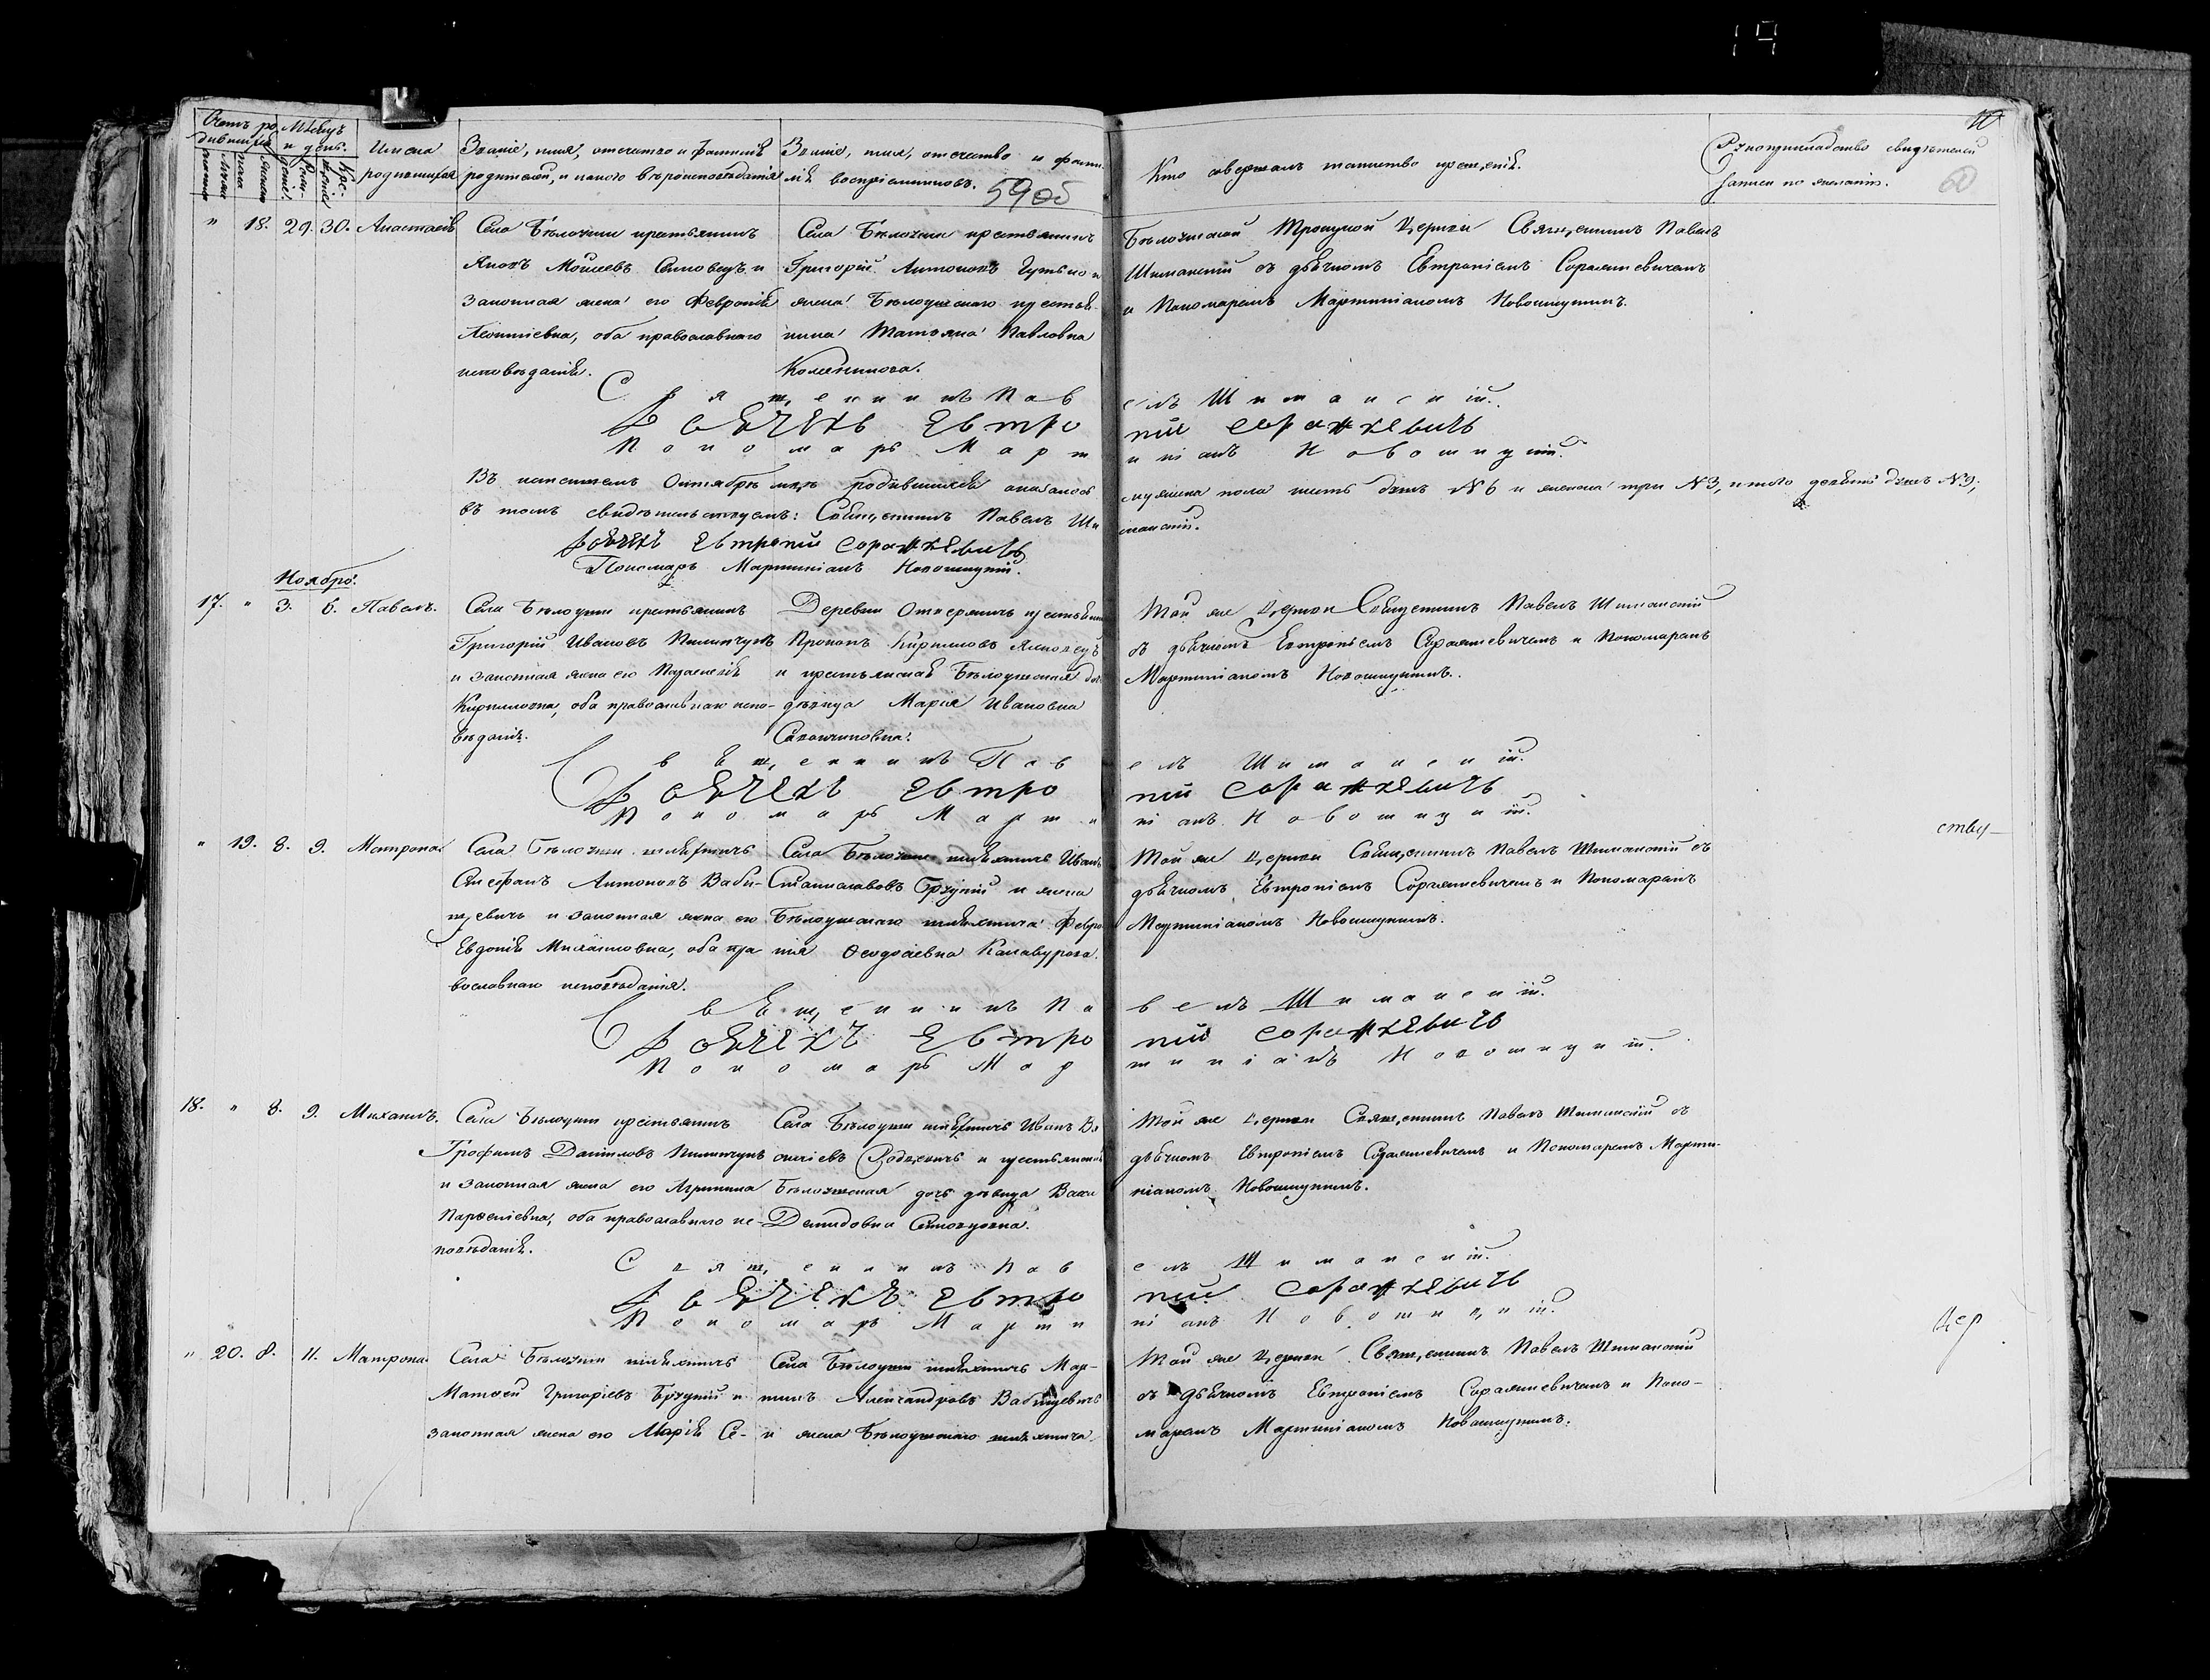 Счетъ ро-
дившихся
Мѣсяцъ
и день.
мужеска
пола
женска
рож-
денія
кре-
щенія
Имена
родившихся
Званіе, имя, отчество и фамилія
родителей, и какого вѣроисповѣданія
Званіе, имя, отчество и фами-
лія воспріемниковъ.
59 об
Кто совершалъ таинство крещенія.
Рукоприкладство свидѣтелей
записи по желанію.
60
" 18. 29. 30. Анастасія
Села Бѣлоуши крестьянинъ
Яковъ Моисеевъ и
законная жена его Февронія
Леонтіевна, оба православнаго
исповѣданія.
Села Бѣлоуши крестьянинъ
Григорій Антоновъ и
жена Бѣлоушскаго крестья-
нина Татьяна Павловна
Колесникова.
Бѣлоушской Троицкой Церкви Священникъ Павелъ
Шиманскій съ дьячкомъ Евтропіемъ Соражкевичемъ
и Пономаремъ Мартиніаномъ Новоминскимъ.
Священникъ Павелъ Шиманскій.
Дьячекъ Евтропій Соражкевичъ
Пономарь Мартиніанъ
Въ истекшемъ Октябрѣ м-цѣ родившихся оказалось мужеска пола шесть душъ №6 и женска три №3, итого девять душъ №9;
въ томъ свидѣтельствуемъ: Священникъ Павелъ Шиманскій.
Дьячекъ Евтропій Соражкевичъ
Пономарь Мартиніанъ
Ноябрь.
17. " 3. 6. Павелъ.
Села Бѣлоуши крестьянинъ
Григорій Ивановъ
и законная жена его Параскевія
Кирилловна, оба православнаго испо-
вѣданія.
Деревни крестьянинъ
Прокопъ Кирилловъ
и крестьянская Бѣлоушская дочь
дѣвица Марія Ивановна
Той же Церкви Священникъ Павелъ Шиманскій
съ дьячкомъ Евтропіемъ Соражкевичемъ и Пономаремъ
Мартиніаномъ
Священникъ Павелъ Шиманскій.
Дьячекъ Евтропій Соражкевичъ
Пономарь Мартиніанъ
" 19. 8. 9. Матрона
Села Бѣлоуши шляхтичъ
Стефанъ Антоновъ Баби-
щевичъ и законная жена его
Евдокія Михайловна, оба пра-
вославнаго исповѣданія.
Села Бѣлоуши шляхтичъ Иванъ
Станиславовъ и жена
Бѣлоушскаго шляхтича Февро-
нія Ѳеодосіевна
Той же Церкви Священникъ Павелъ Шиманскій съ
дьячкомъ Евтропіемъ Соражкевичемъ и Пономаремъ
Мартиніаномъ
ству-
Священникъ Павелъ Шиманскій.
Дьячекъ Евтропій Соражкевичъ
Пономарь Мартиніанъ
18. " 8. 9. Михаилъ.
Села Бѣлоуши крестьянинъ
Трофимъ Даниловъ
и законная жена его Агрипина
Парѳеніевна, оба православнаго ис-
повѣданія.
Села Бѣлоуши шляхтичъ Иванъ Ва-
силіевъ и крестьянская
Бѣлоушская дочь дѣвица
Демидовна
Той же Церкви Священникъ Павелъ Шиманскій съ
дьячкомъ Евтропіемъ Соражкевичемъ и Пономаремъ Марти-
ніаномъ
Священникъ Павелъ Шиманскій.
Дьячекъ Евтропій Соражкевичъ
Пономарь Мартиніанъ
Цер
" 20. 8. 11. Матрона
Села Бѣлоуши шляхтичъ
Матѳей Григоріевъ и
законная жена его Марія Се-
Села Бѣлоуши шляхтичъ Мар-
тинъ Александровъ Бабищевичъ
и жена Бѣлоушскаго шляхтича
Той же Церкви Священникъ Павелъ Шиманскій
съ дьячкомъ Евтропіемъ Соражкевичемъ и Поно-
маремъ Мартиніаномъ